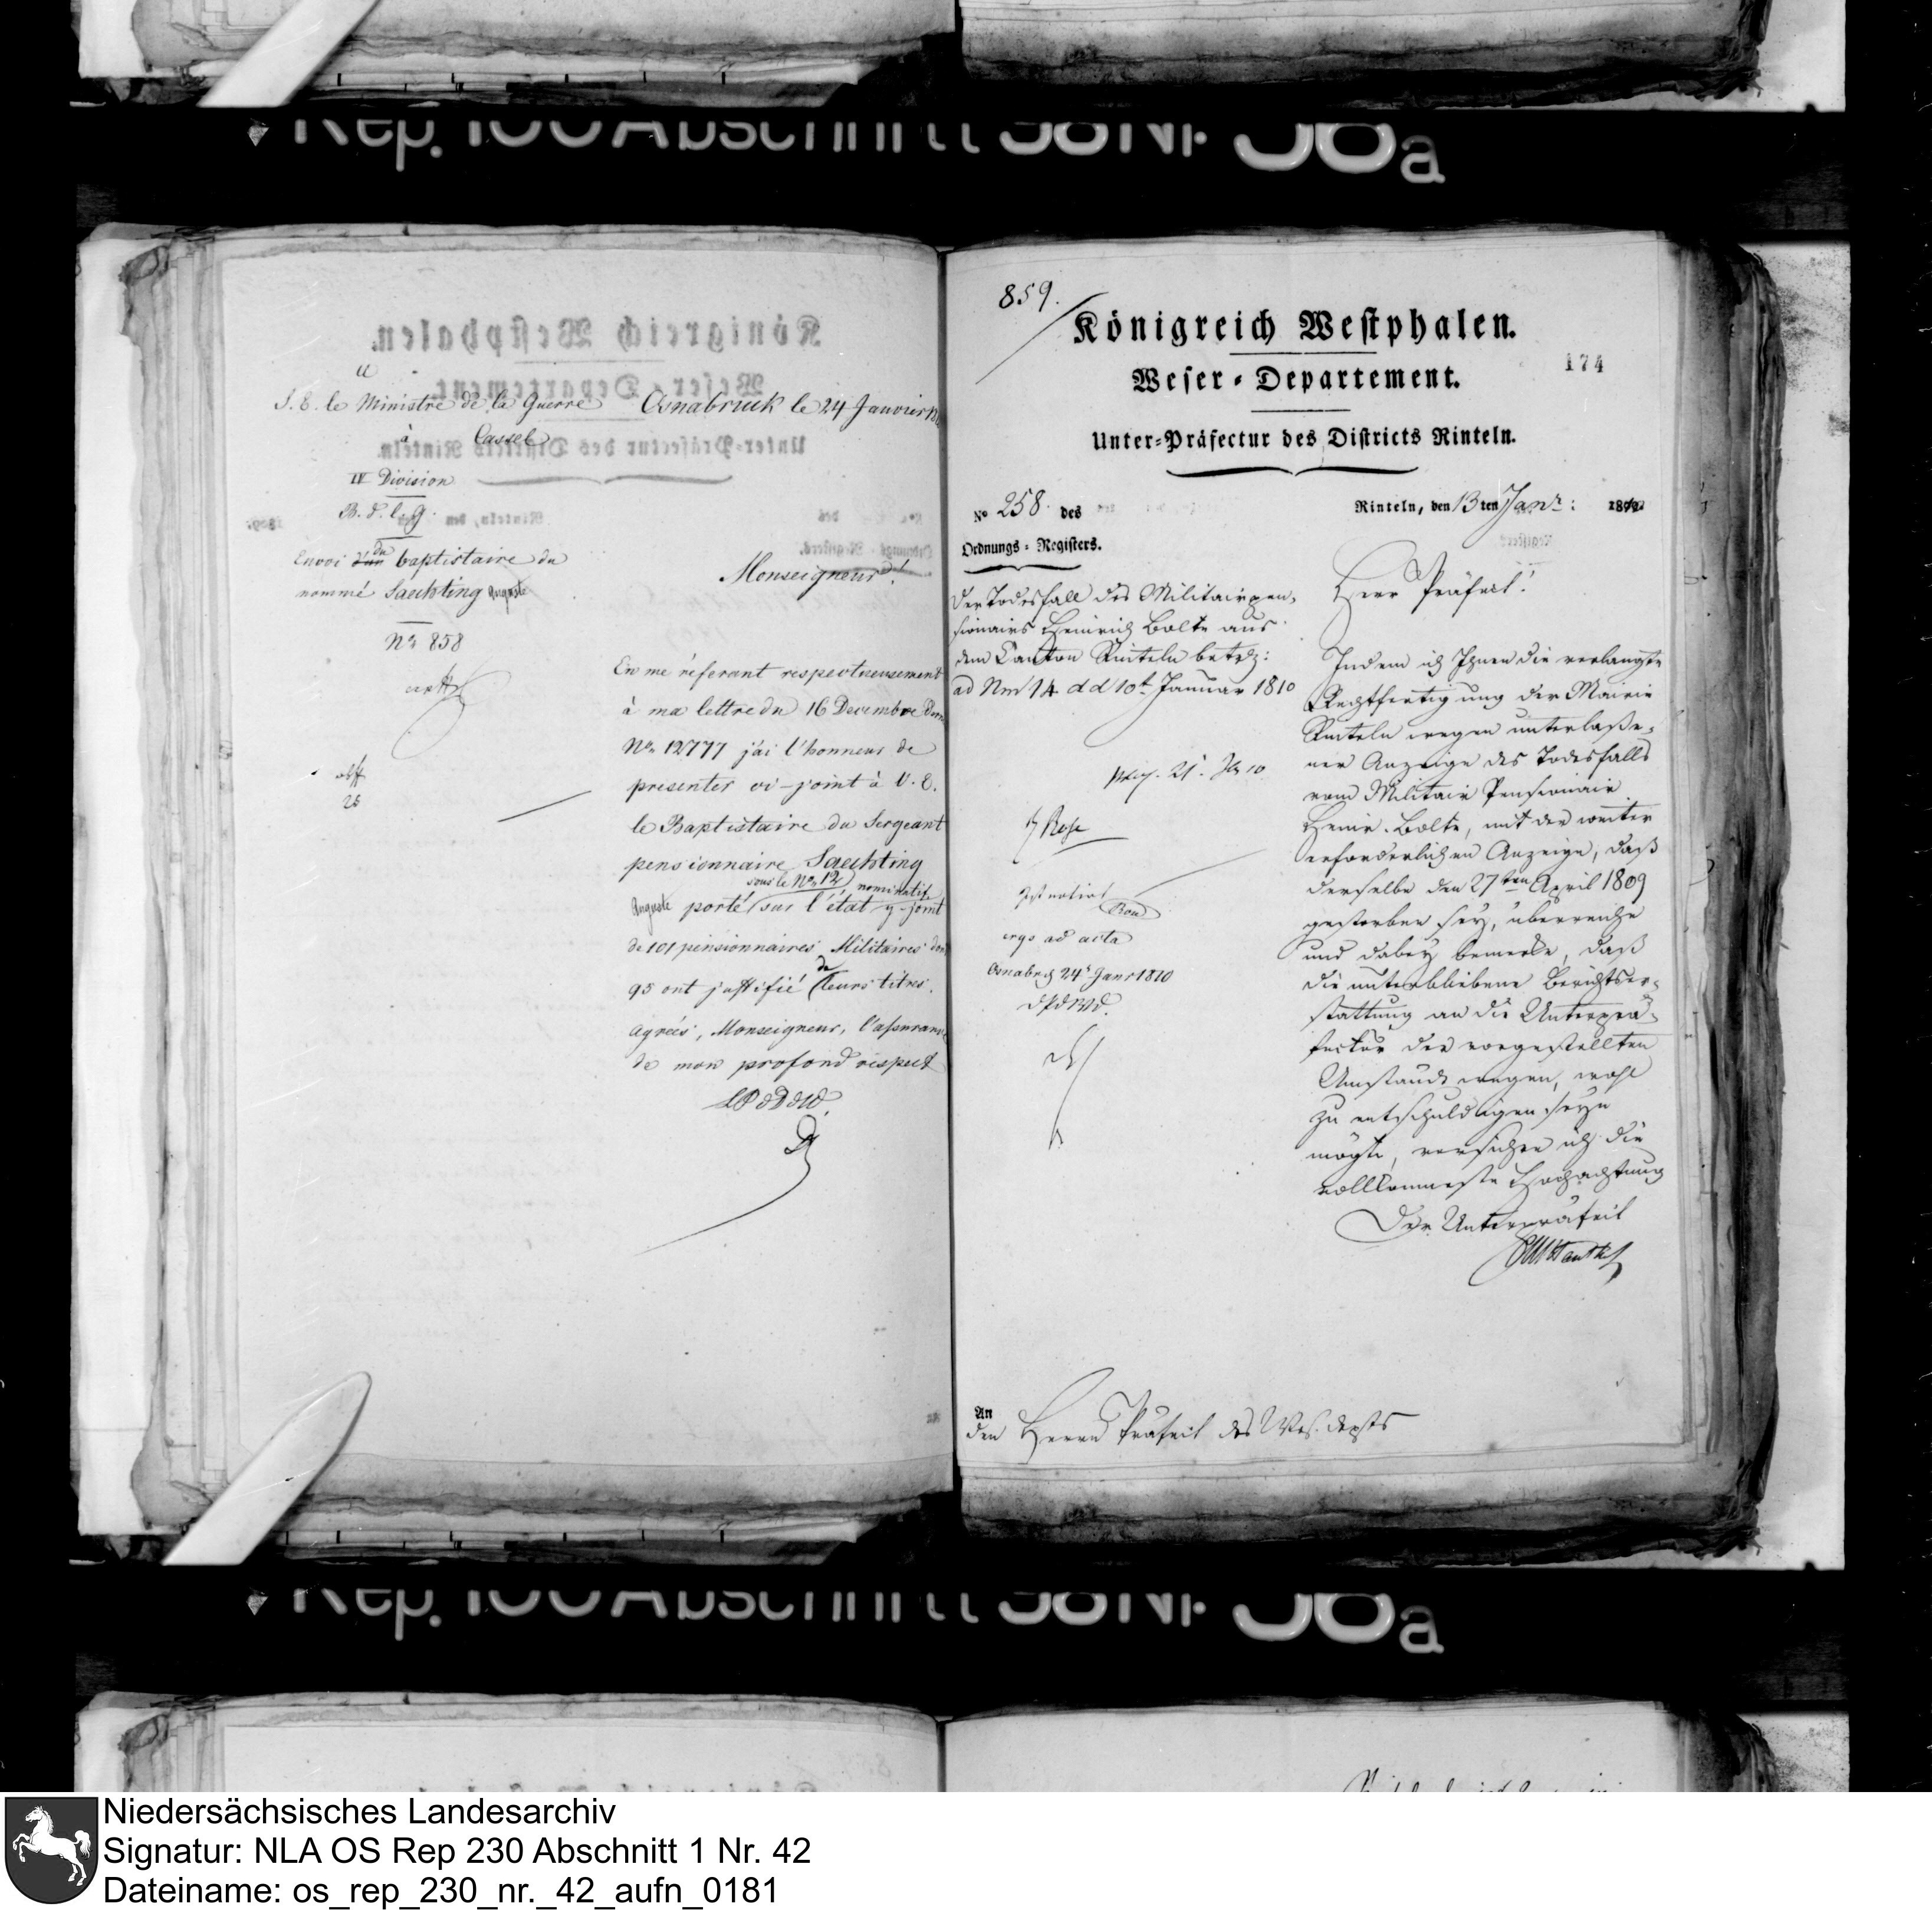 Rep. 100 Abschnitt 38 Nr 38a
S. E. le Ministre de la Guerre
à Cassel
IV Division
B. d. l. g.
Envoi d'un du baptistaire du
nommé Saechting Auguste
Nr 858
abff
26
Osnabruck le 24 Janvier
Monseigneur!
En me réferant respectueusement
à ma lettre du 16 Decembre
No 12777 j'ai l'honneur de
presenter ci-joint à V. E.
le Baptistaire du Sergeant
pensionnaire Saechting
Auguste porté sous le No 12 sur l'état nominatif y-joint
de 101 pensionnaires Militaires
95 ont justifié de leurs titres.
Agréés, Monseigneur, l'assurance
de mon profond respect
LPdDdW.
859.
Königreich Westphalen.
Weser-Departement.
174
Unter-Präfectur des Districts Rinteln.
No 258 des
Ordnungs-Registers.
Rinteln, den 13ten Janr: 1810
Der Todesfall des Militairpen-
sionairs Heinrich Bolte aus
dem Canton Rinteln betr:
ad Nm 14 dd 10t Januar 1810
H Rose
Ist notirt
Bond
ergo ad acta
Osnabrck 24t Janr 1810
DPdWD.
Herr Präfect!
Indem ich Ihnen die verlangte
Rechtfertigung der Mairie
Rinteln wegen unterlaße-
ner Anzeige des Todesfalls
vom Militair Pensionair
Heinr. Bolte, mit der weiter
erforderlichen Anzeige, daß
derselbe den 27ten April 1809
gestorben sey, überreiche
und dabey bemerke, daß
die unterbliebene Berichtser-
stattung an die Unterprä-
fectur der vorgestellten
Umstände wegen, wohl
zu entschuldigen seyn
mögte, versichre ich die
vollkommenste Hochachtung
Der Unterpräfect
An
den Herrn Präfect des Wes. depts
Rep. 100 Abschnitt 38 Nr 38a
Niedersächsisches Landesarchiv
Signatur: NLA OS Rep 230 Abschnitt 1 Nr. 42
Dateiname: os_rep_230_nr._42_aufn_0181